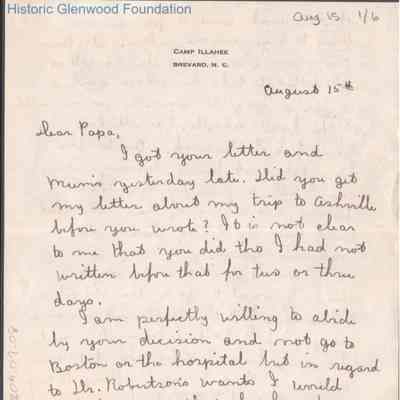 Historic Glenwood Foundation
Aug 15 1/6
CAMP ILLAHEE
BREVARD, N. C.
August 15th
Dear Papa,
I got your letter and
Mum's yesterday late. Did you get
my letter about my trip to Ashville
before you wrote? It is not clear
to me that you did tho I had not
written before that for two or three
days.
I am perfectly willing to abide
by your decision and not go to
Boston or the hospital but in regard
to Dr. Robertson's wants I would